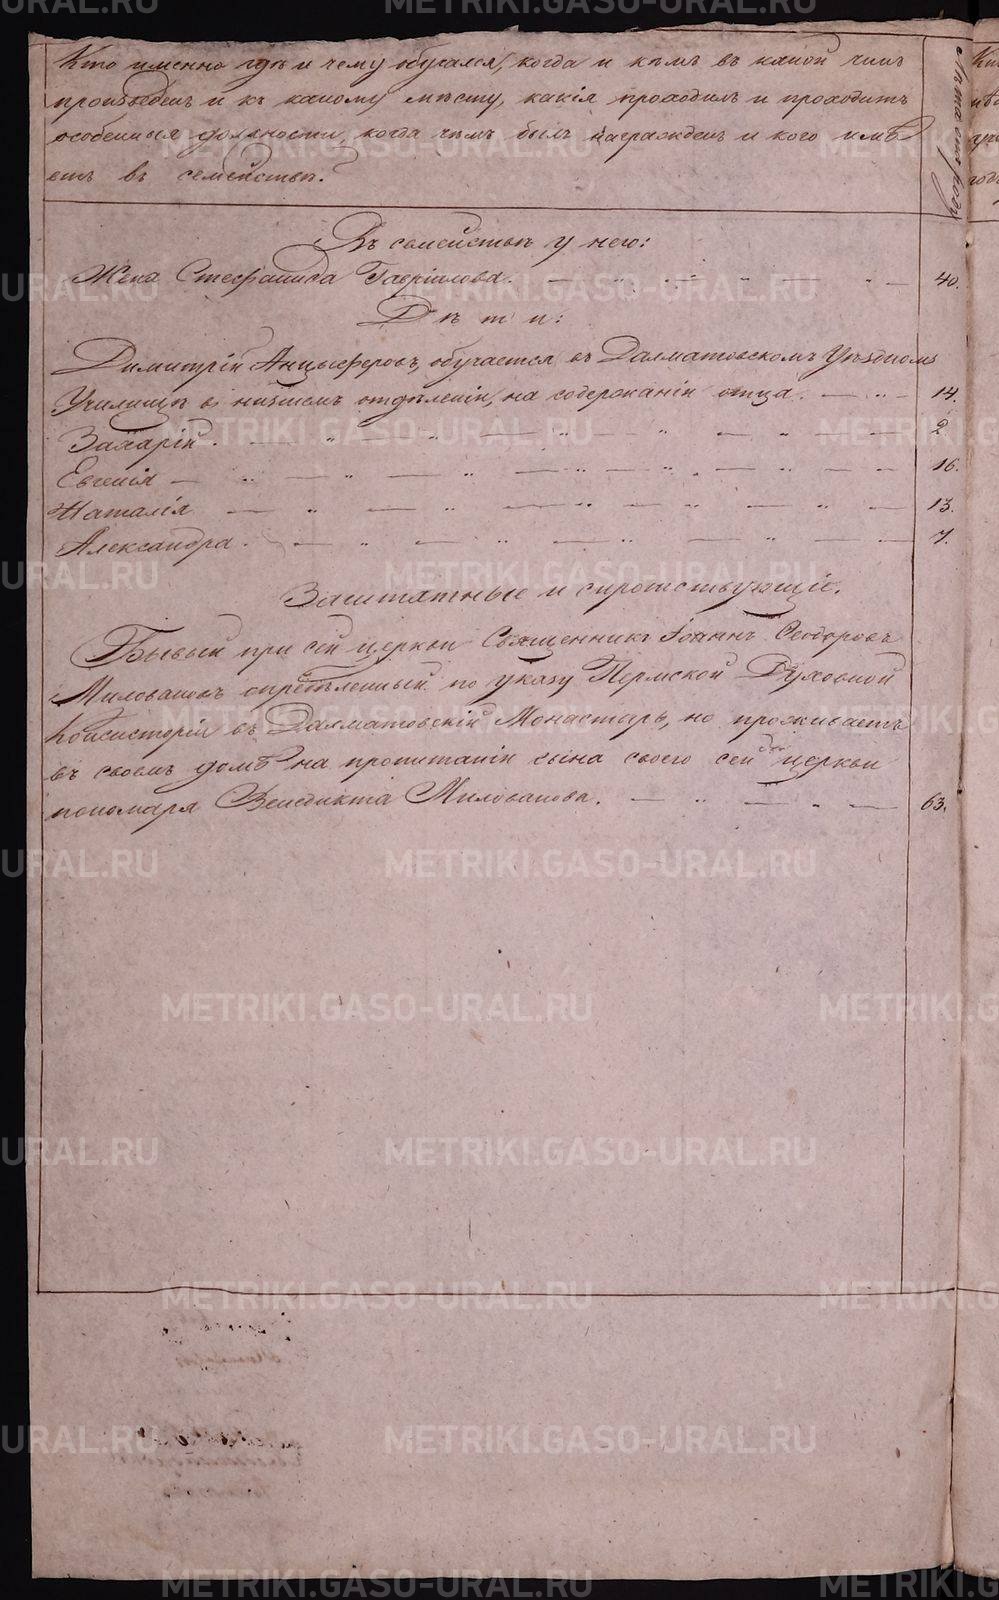 Кто именно гдѣ и чему обучался, когда и кѣмъ въ какой чинъ
произведенъ и къ какому мѣсту, какія проходилъ и проходитъ
особенныя должности, когда чѣмъ былъ награжденъ и кого имѣ
етъ въ семействѣ.
Въ семействѣ у него:
Жена Стефанида Гавріилова. 40.
Дѣти:
Димитрій Анцыферовъ, обучается въ Далматовскомъ Уѣздномъ
Училищѣ въ низшемъ отдѣленіи, на содержаніи отца. 14.
Захарій. 2
Евгенія 16.
Наталія 13.
Александра. 7.
Заштатные и сиротствующіе.
Бывый при сей церкви Священникъ Іоаннъ Ѳеодоровъ
Миловановъ опредѣленный по указу Пермской Духовной
Консисторіи въ Далматовскій Монастырь, но проживаетъ
въ своемъ домѣ на пропитаніи сына своего сей церкви
пономаря Венедикта Милованова. 63.
METRIKI.GASO-URAL.RU